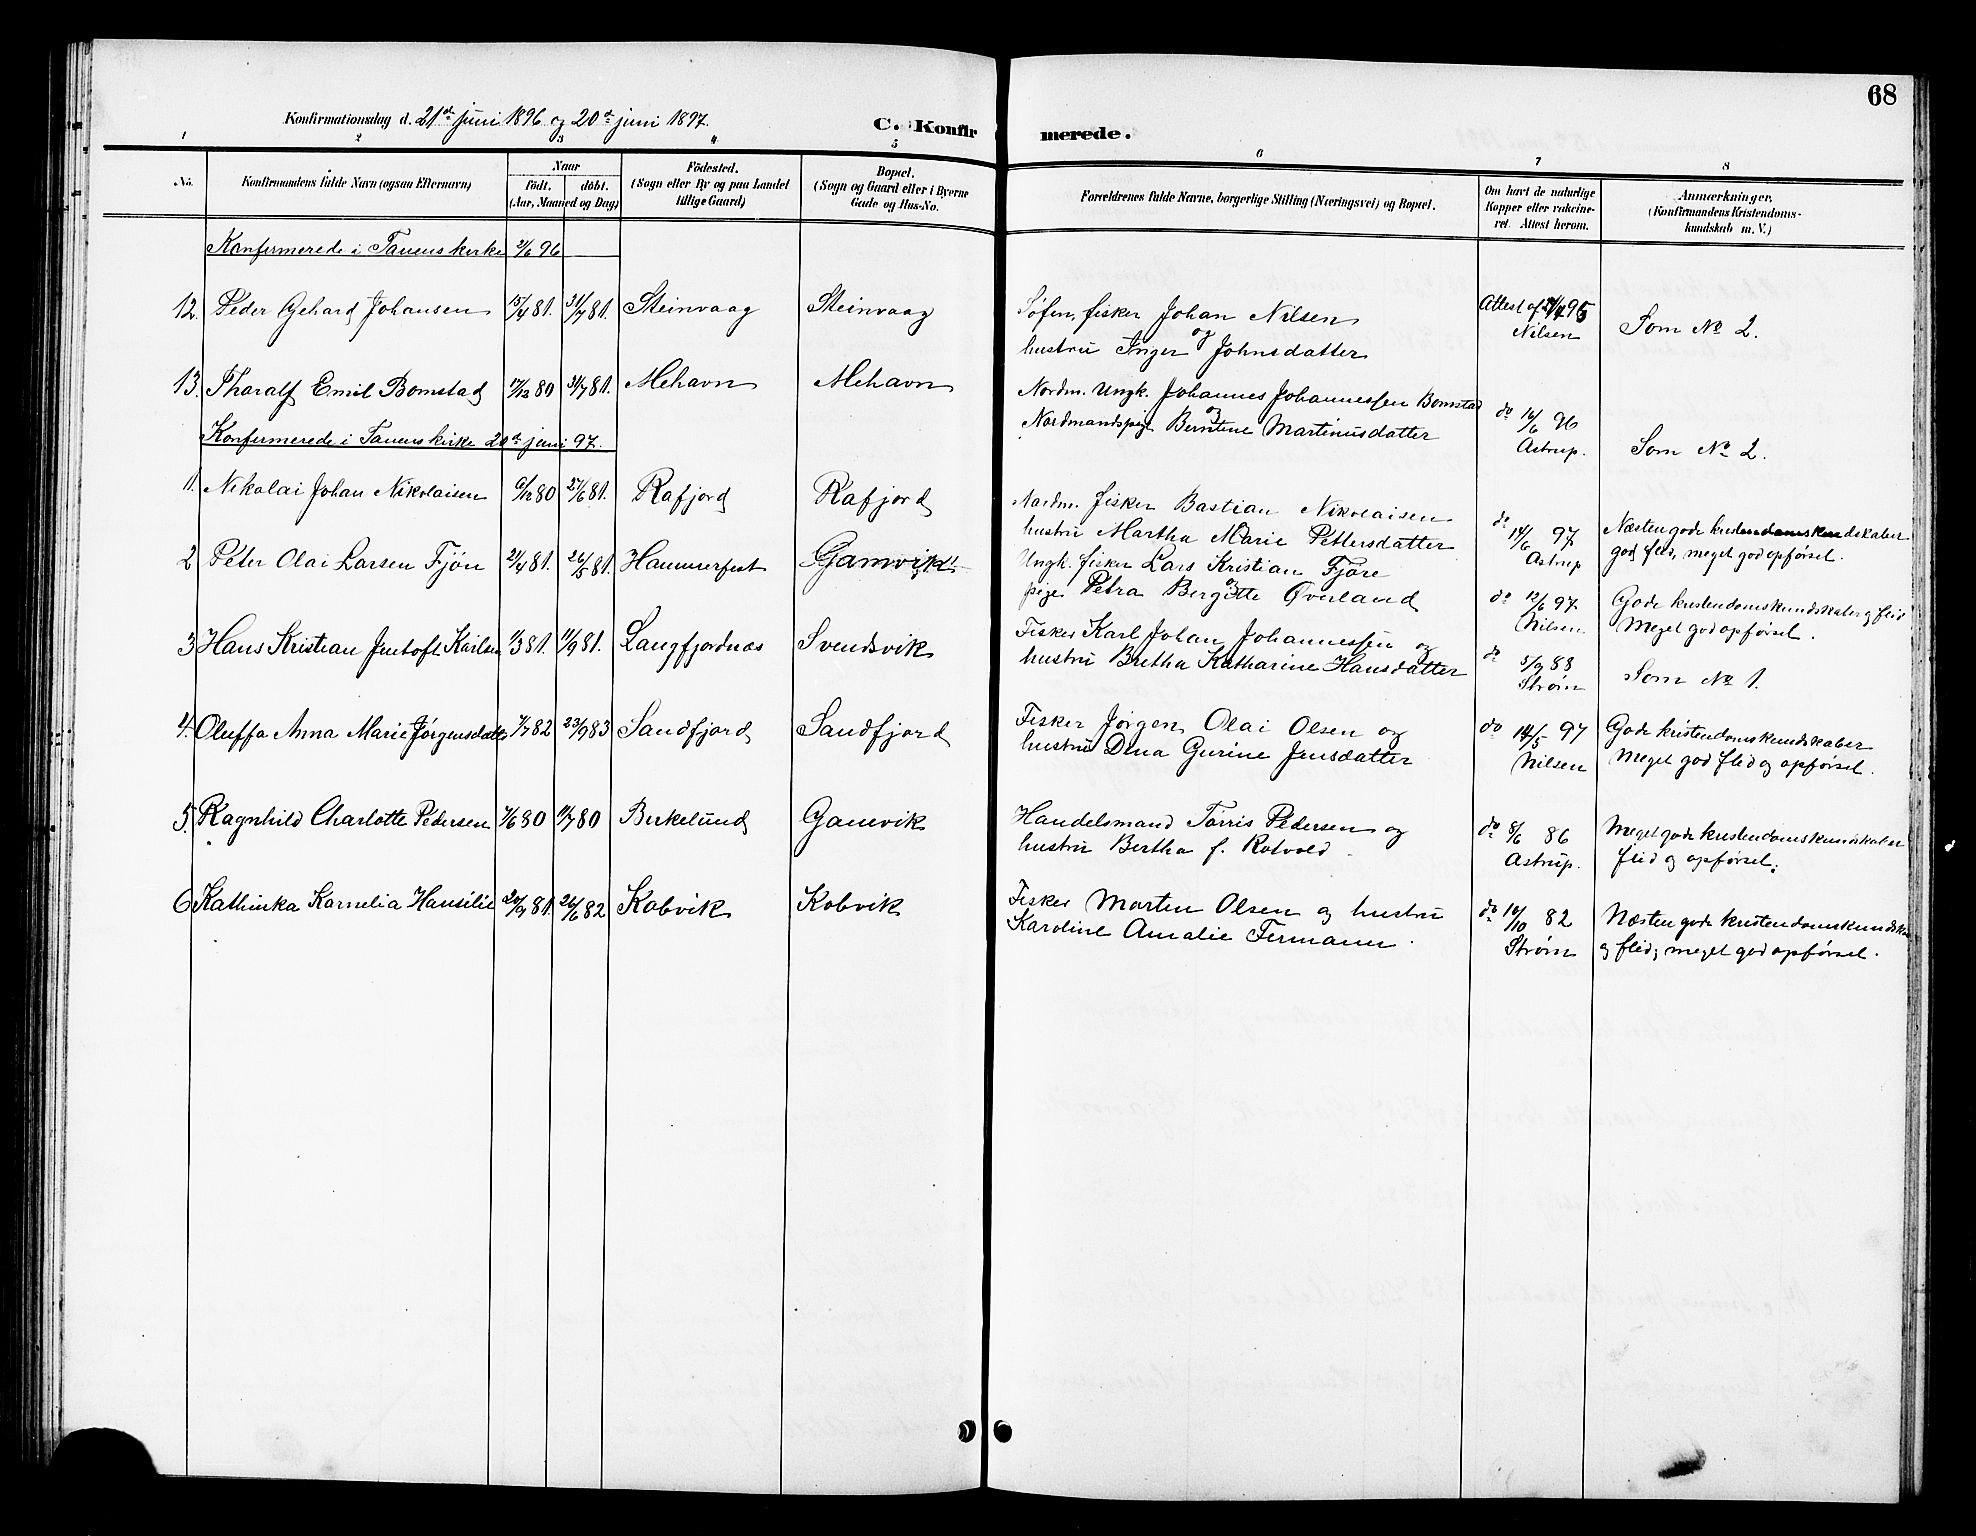 68
Konfirmationsdag d. 21de juni 1896 og 20de juni 1897.
C. Konfirmerede.
1 2 3 4 5 6 7 8
No. Konfirmandens fulde Navn (ogsaa Efternavn) Naar født. døbt. (Aar, Maaned og Dag) Födested. (Sogn eller By og paa Landet tillige Gaard) Bopæl. (Sogn og Gaard eller i Byerne Gade og Hus-No. Forældrenes fulde Navne, borgerlige Stilling (Næringsvei) og Bopæl. Om havt de naturlige Kopper eller vakcineret. Attest herom. Anmærkninger. (Konfirmandens Kristendomskundskab m. V.)
Konfirmerede i Tanens kirke 21/6 96
12. Peder Gehard Johansen 15/4 81. 31/7 81. Steinvaag Steinvaag Søfin, fisker Johan Nilsen og
hustru Inger Johnsdatter Attest af 95 Nilsen Som No 2.
13. Tharalf Emil Bomstad 17/12 80 31/7 81. Mehavn Mehavn Nordm. Ungk. Johannes Johannessen Bomstad og
Nordmandspige Berntine Martinusdatter do 16/6 96 Astrup. Som No 2.
Konfirmerede i Tanens kirke 20de juni 97.
1. Nikolai Johan Nikolaisen 6/12 80 27/6 81. Rafjord Rafjord Nordm. fisker Bastian Nikolaisen
hustru Martha Marie Pettersdatter do 14/6 97 Astrup Næsten gode kristendomskundskaber
god flid, meget god opførsel.
2 Peter Olai Larsen Fjøn 21/4 81. 26/5 81. Hammerfest Gamvik Ungk. fisker Lars Kristian Fjøre og
pige Petra Bergitte Øverland do 12/6 97 Nilsen Gode kristendomskundskaber og flid
Meget god opførsel.
3 Hans Kristian Jentoft Karlsen 1/3 81. 11/9 81. Langfjordnæs Svendsvik Fisker Karl Johan Johannessen og
hustru Bretha Katharine Hansdatter do 5/9 88 Strøm Som No 1.
4. Oluffa Anna Marie Jørgensdatter 7/7 82 23/9 83 Sandfjord Sandfjord Fisker Jørgen Olai Olsen og
hustru Dina Gurine Jensdatter do 14/5 97 Nilsen Gode kristendomskundskaber
Meget god flid og opførsel.
5. Ragnhild Charlotte Pedersen 7/6 80 11/7 80 Birkelund Gamvik Handelsmand Tørris Pedersen og
hustru Bertha f. Rotvold. do 8/6 86 Astrup. Meget gode kristendomskundskaber
flid og opførsel.
6 Kathinka Karnelia Hansilie 20/9 81. 26/6 82 Kobvik Kobvik Fisker Morten Olsen og hustru
Karoline Amalie Fermann. do 16/10 82 Strøm Næsten gode kristendomskundsk
og flid; meget god opførsel.